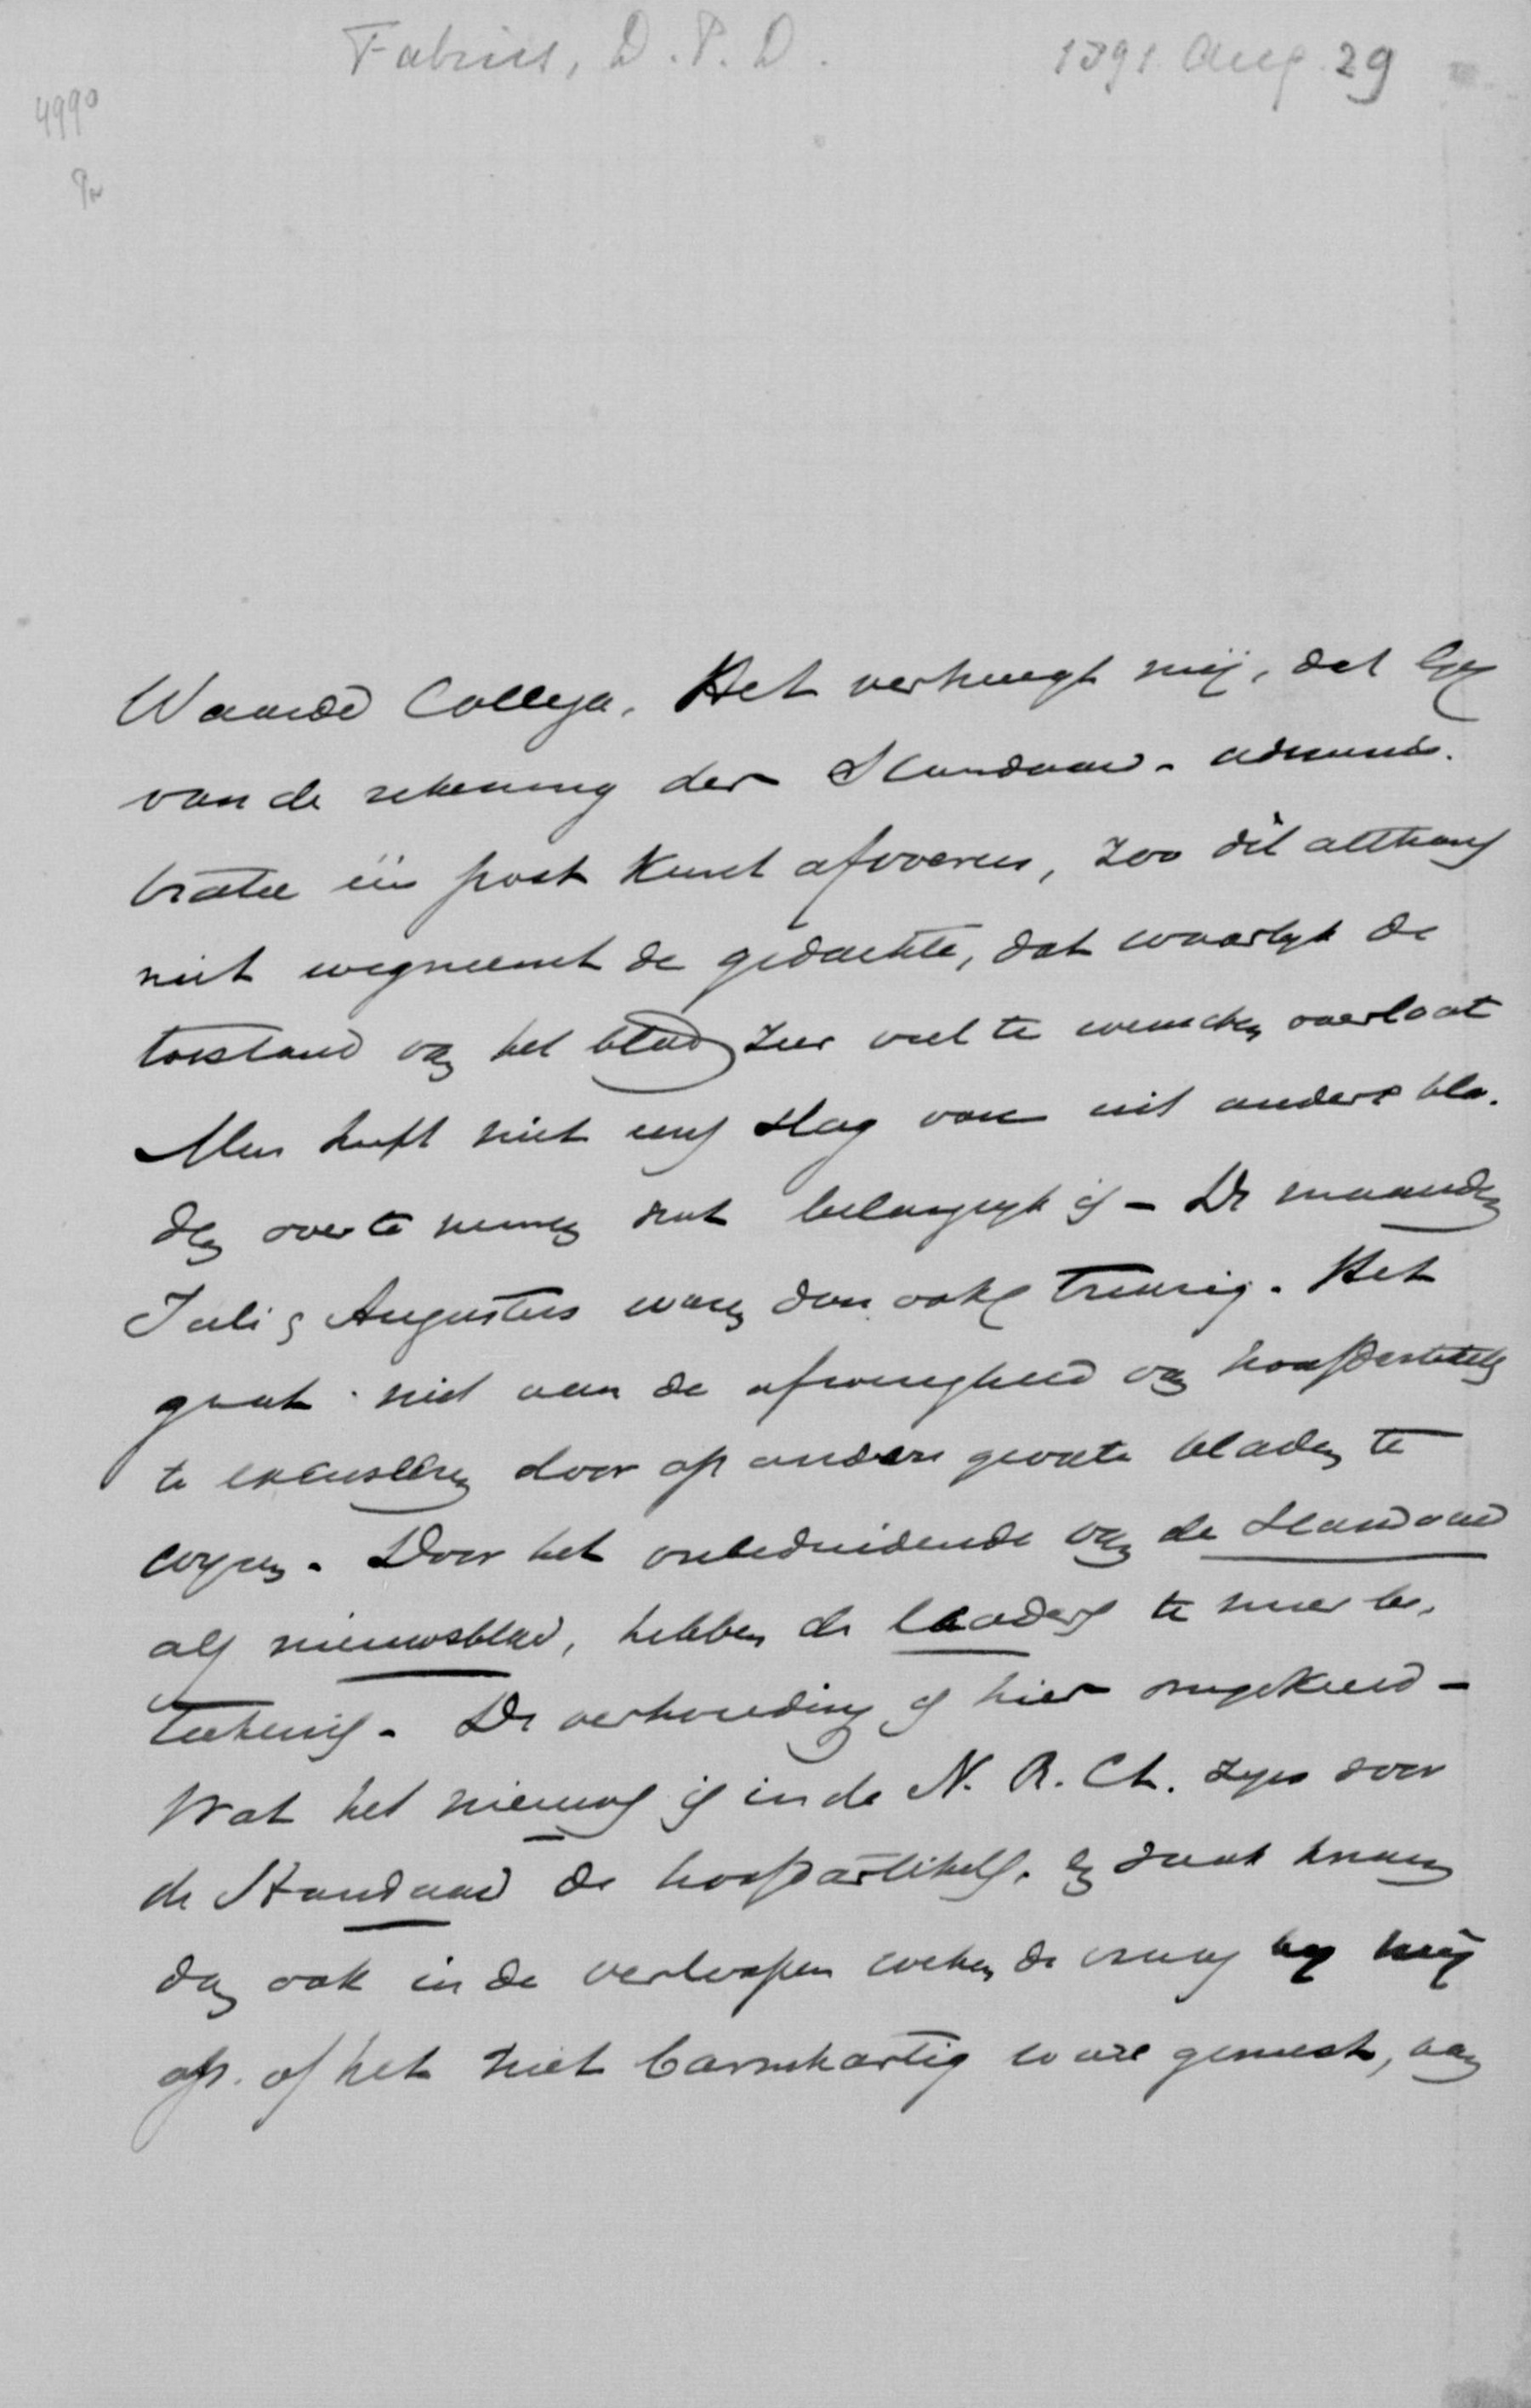 Fabius, D. P. D. 1891 Aug. 29
4990
Waarde Collega. Het verheugt mij, dat Gij
van de rekening der Standaard-adminis-
tratie één post kunt afvoeren, zoo dit althans
niet wegneemt de gedachte, dat waarlijk de
toestand van het blad zeer veel te wenschen overlaat
Men heeft niet eens slag van uit andere bla-
den over te nemen wat belangrijk is - De maanden
Juli & Augustus waren dan ook treurig. Het
gaat niet aan de afwezigheid van hoofdartikels
te excuseeren door op andere groote bladen te
wijzen. Door het onbeduidende van de Standaard
als nieuwsblad, hebben de leaders te meer be-
teekenis. De verhouding is hier omgekeerd -
Wat het nieuws is in de N. R. Ct. zijn voor
de Standaard de hoofdartikels. En vaak kwam
dan ook in de verloopen weken de vraag bij mij
op. of het niet barmhartig ware geweest, aan